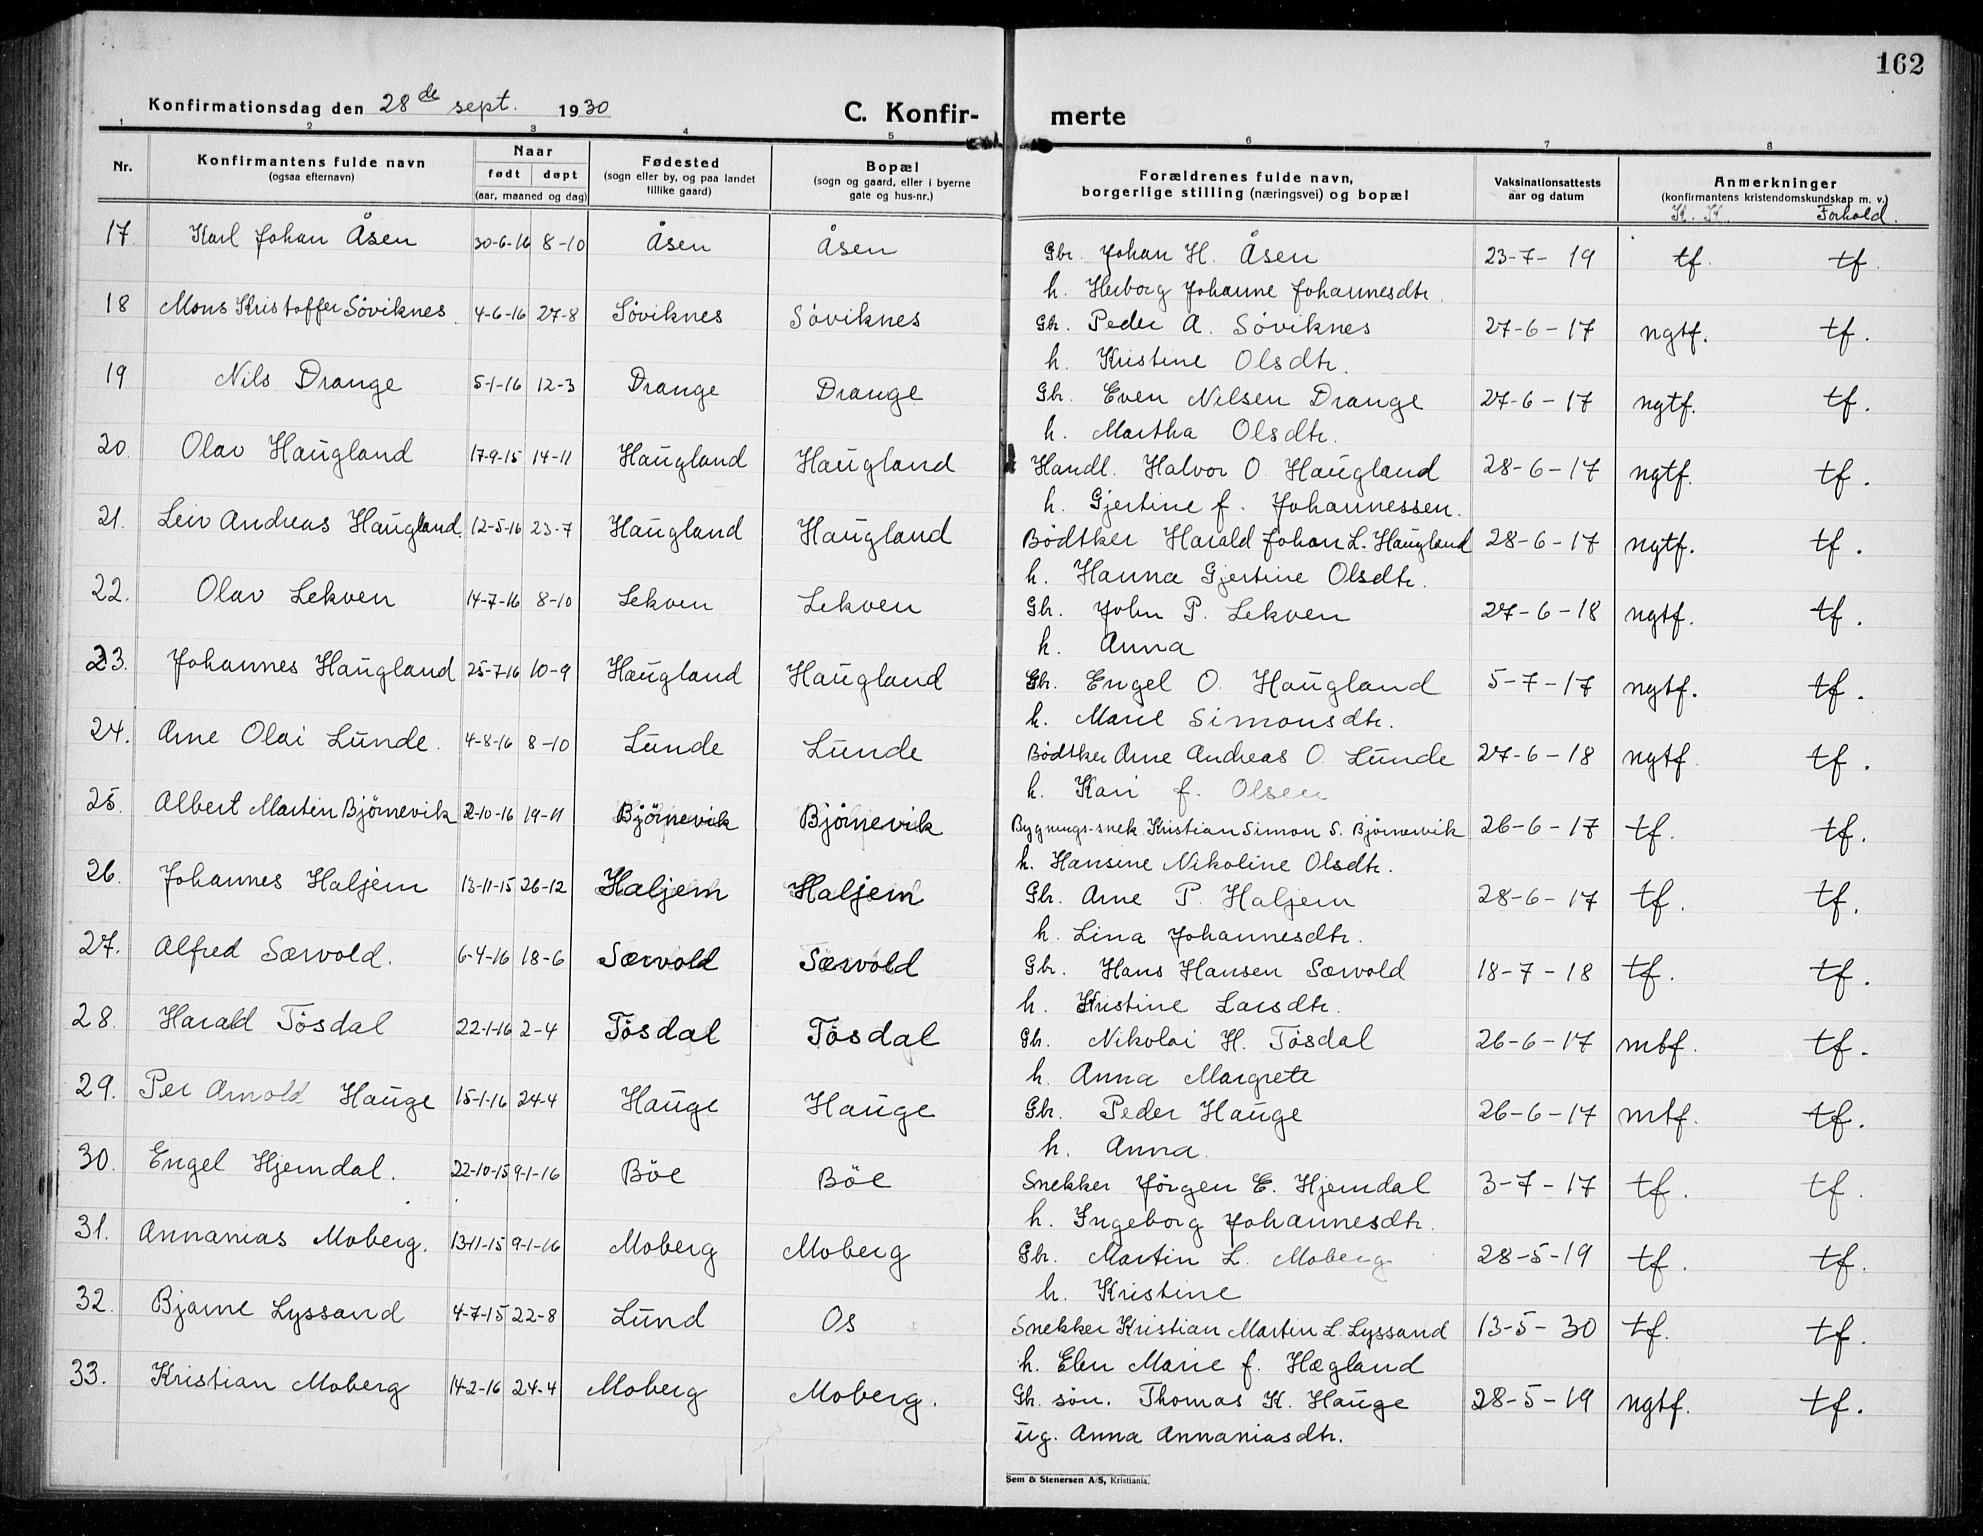 162
Konfirmationsdag den 28de sept. 1930 C. Konfir- merte
1 2 3 4 5 6 7 8
Nr. Konfirmantens fulde navn (ogsaa efternavn) Naar født døpt (aar, maaned og dag) Fødested (sogn eller by, og paa landet tillike gaard) Bopæl (sogn og gaard, eller i byerne gate og hus-nr.) Forældrenes fulde navn, borgerlige stilling (næringsvei) og bopæl Vaksinationsattests aar og datum Anmerkninger (konfirmantens kristendomskundskap m. v.)
K. K. Forhold.
17. Karl Johan Åsen 30-6-16 8-10 Åsen Åsen Gbr. Johan H. Åsen 23-7-19 tf. tf.
h. Herborg Johanne Johannesdtr.
18 Mons Kristoffer Söviknes 4-6-16 27-8 Söviknes Söviknes Gbr. Peder A. Söviknes 27-6-17 ngtf. tf.
h. Kristine Olsdtr.
19 Nils Drange 5-1-16 12-3 Drange Drange Gbr. Even Nilsen Drange 27-6-17 ngtf. tf.
h. Martha Olsdtr.
20. Olav Haugland 17-9-15 14-11 Haugland Haugland Handl. Halvor O. Haugland 28-6-17 ngtf. tf.
h. Gjertine f. Johannessen.
21. Leiv Andreas Haugland. 12-5-16 23-7 Haugland Haugland Bödtker Harald Johan L. Haugland 28-6-17 ngtf. tf.
h. Hanna Gjertine Olsdtr.
22. Olav Lekven 14-7-16 8-10 Lekven Lekven Gbr. John P. Lekven 27-6-18 ngtf. tf.
h. Anna
23. Johannes Haugland 25-7-16 10-9 Haugland Haugland Gbr. Engel O. Haugland 5-7-17 ngtf. tf.
h. Marie Simonsdtr.
24. Arne Olai Lunde. 4-8-16 8-10 Lunde Lunde Bödtker Arne Andreas O. Lunde 27-6-18 ngtf tf.
h. Kari f. Olsen
25. Albert Martin Björnevik 2-10-16 19-11 Björnevik Björnevik Bygnings-snek. Kristian Simon S. Björnevik 26-6-17 tf. tf.
h. Hansine Nikoline Olsdtr.
26. Johannes Haljem 13-11-15 26-12 Haljem Haljem Gbr. Arne P. Haljem 28-6-17 tf. tf.
h. Lina Johannesdtr.
27. Alfred Særvold. 6-4-16 18-6 Særvold Særvold Gbr. Hans Hansen Særvold 18-7-18 tf. tf.
h. Kristine Larsdtr.
28. Harald Tösdal 22-1-16 2-4 Tösdal Tösdal Gbr. Nikolai H. Tösdal 26-6-17 mbf. tf.
h. Anna Margrete
29. Per Arnold Hauge 15-1-16 24-4 Hauge Hauge Gbr. Peder Hauge 26-6-17 mtf. tf.
h. Anna.
30. Engel Hjemdal. 22-10-15 9-1-16 Böe Böe Snekker Jörgen E. Hjemdal 3-7-17 tf. tf.
h. Ingeborg Johannesdtr.
31. Annanias Moberg. 13-11-15 9-1-16 Moberg Moberg Gbr. Martin L. Moberg 28-5-19 tf. tf.
h. Kristine
32. Bjarne Lyssand 4-7-15 22-8 Lund Os Snekker Kristian Martin L. Lyssand 13-5-30 tf. tf.
h. Elen Marie f. Hægland
33. Kristian Moberg 14-2-16 24-4 Moberg Moberg. Gb. søn. Thomas K. Hauge 28-5-19 ngtf. tf.
ug. Anna Annaniasdtr.
Sem & Stenersen A/S, Kristiania.